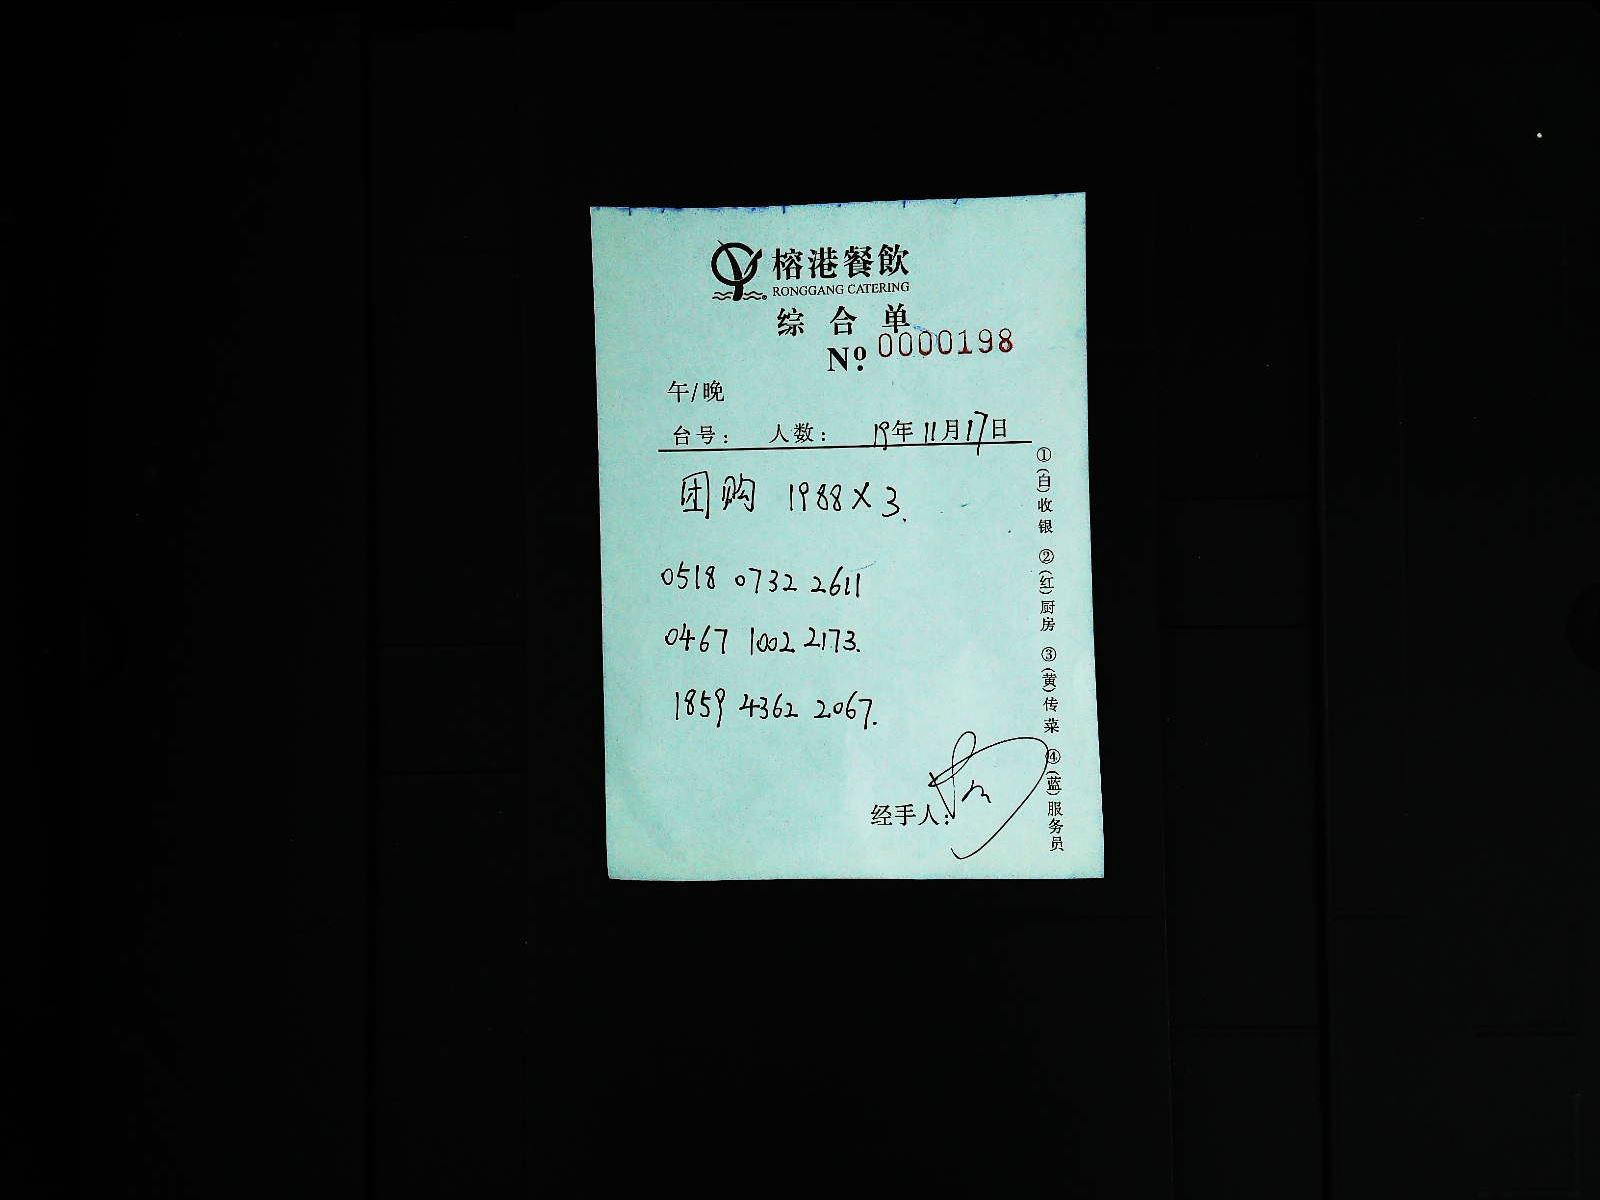 榕港餐飲
RONGGANG CATERING
综合单
Nº. 0000198
午/晚
台号： 人数： 19年11月17日
团购 1988×3.
0518 0732 2611
0467 1002 2173.
1859 4362 2067.
经手人：
①(白)收银 ②(红)厨房 ③(黄)传菜 ④(蓝)服务员